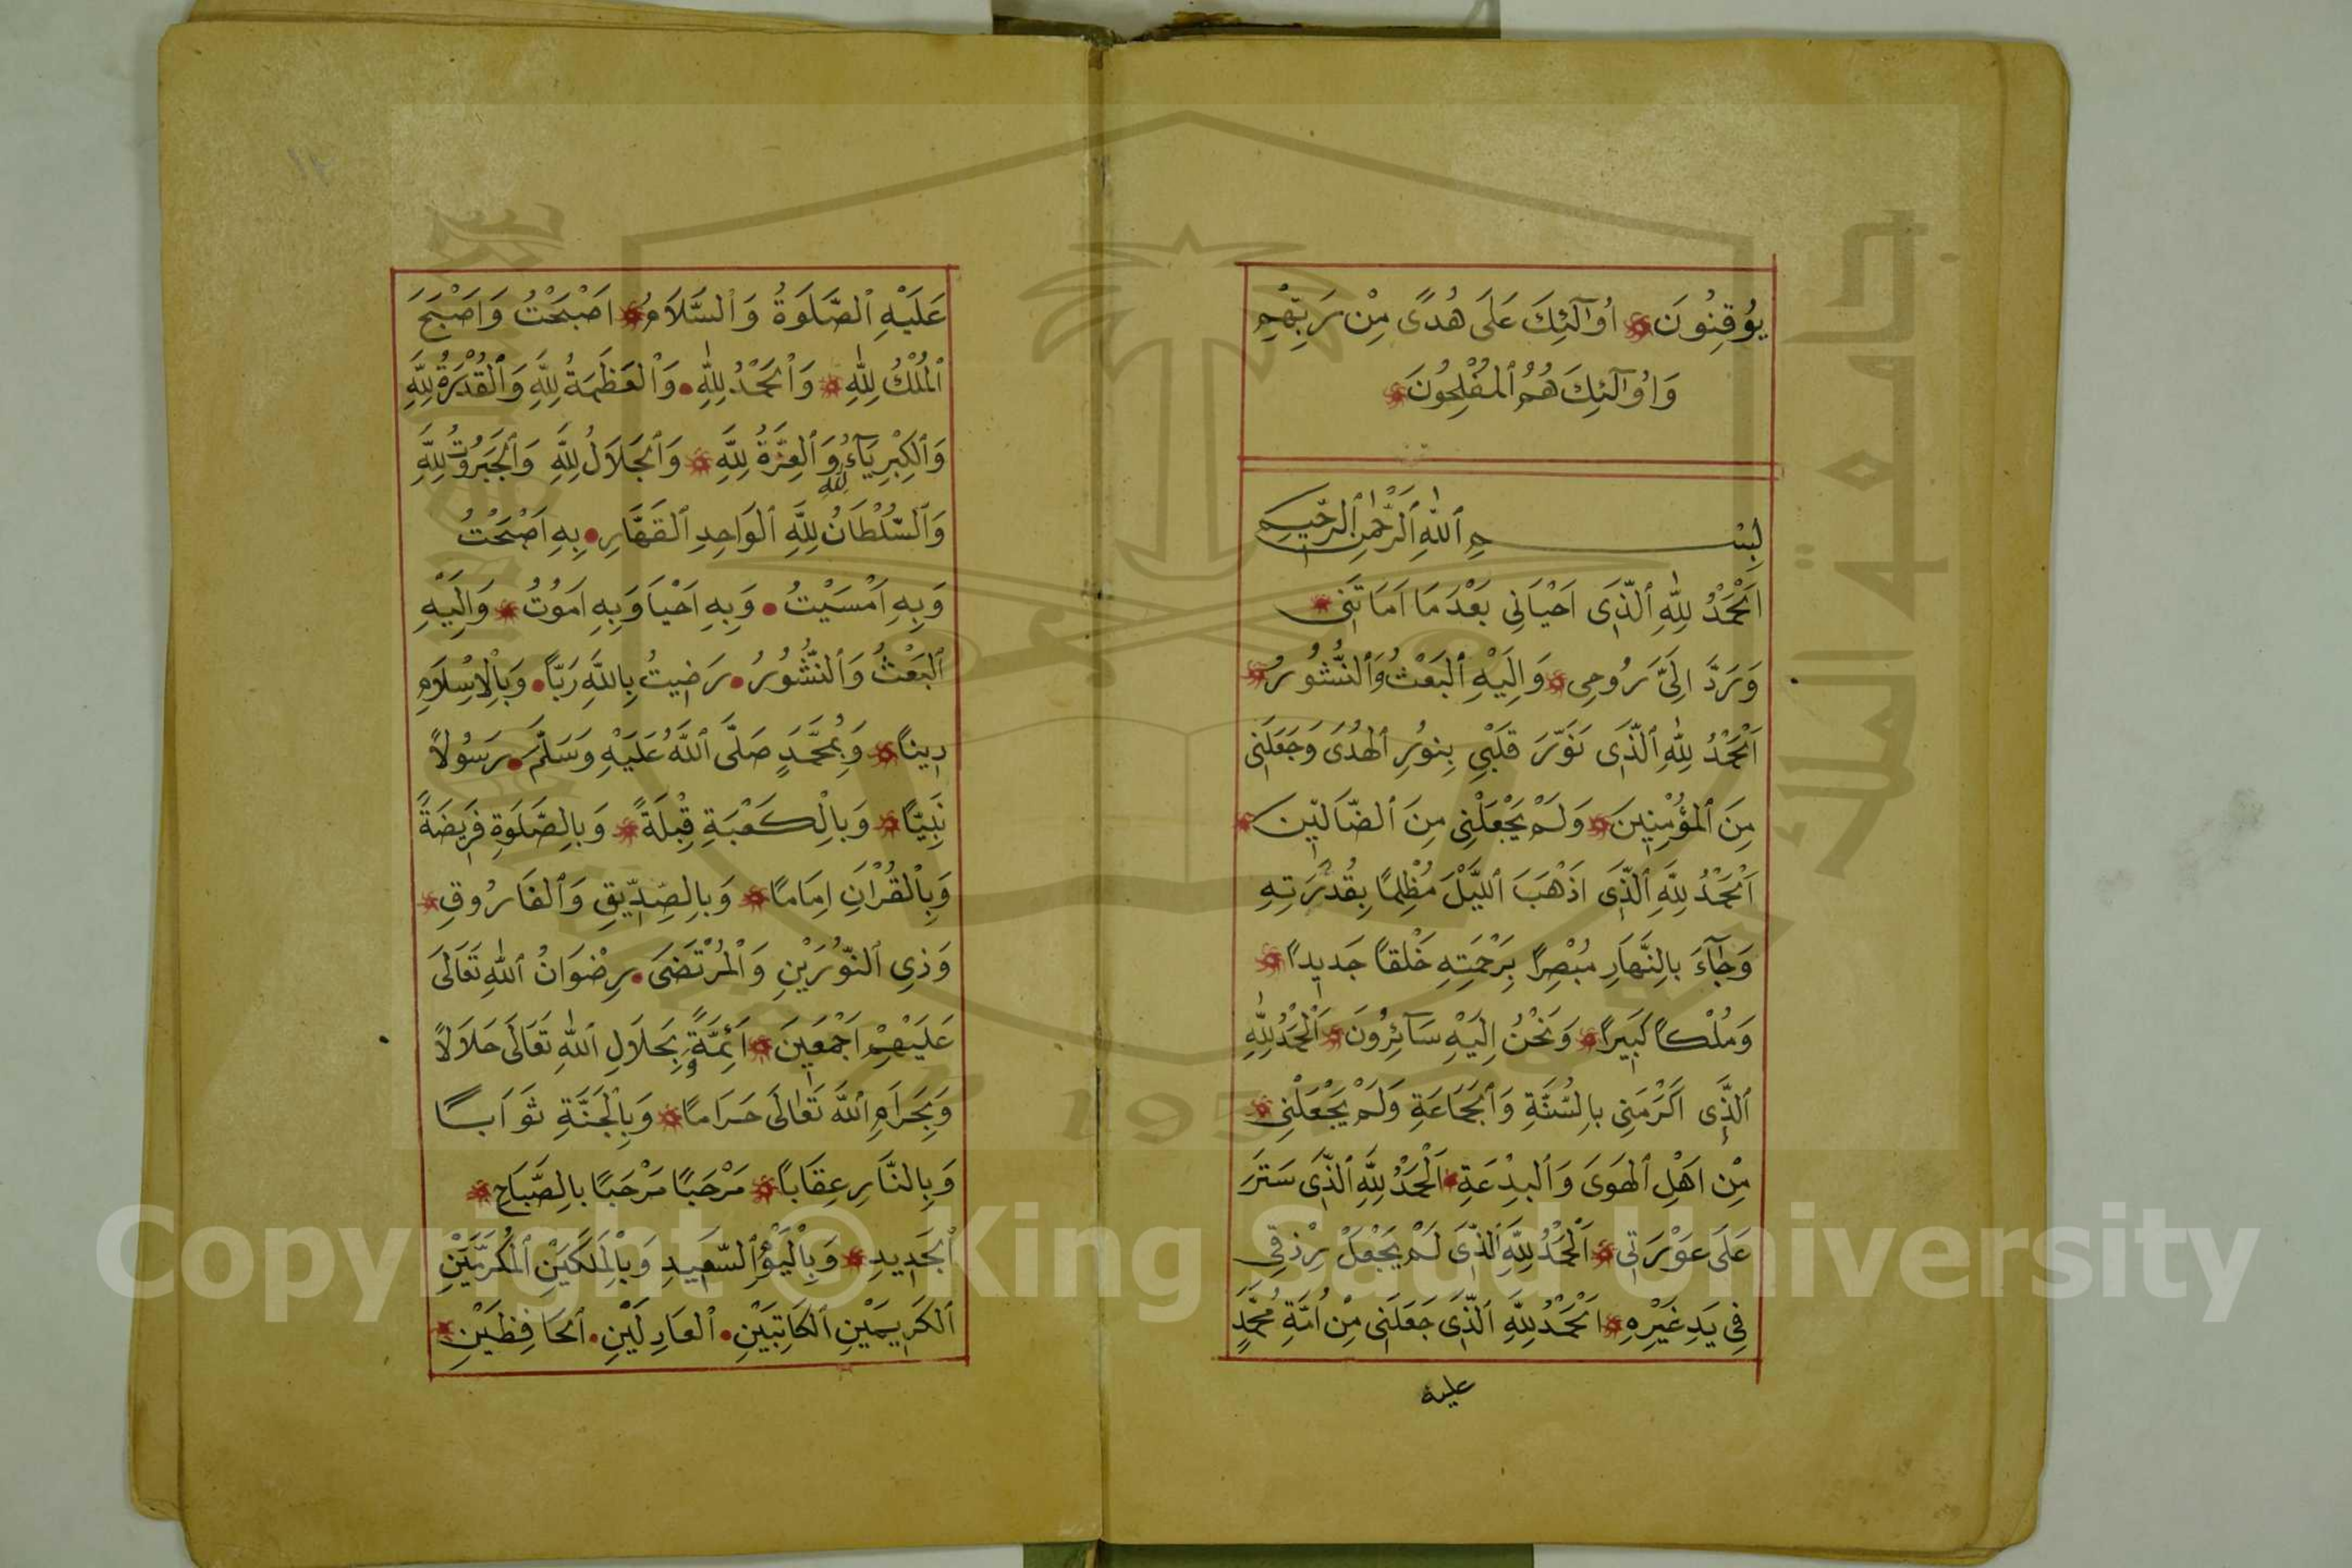 يُوقِنُونَ اُولٰٓئِكَ عَلَى هُدًى مِنْ رَبِّهِمْ
وَاُولٰٓئِكَ هُمُ ٱلْمُفْلِحُونَ
بِسْمِ ٱللّٰهِ ٱلرَّحْمٰنِ ٱلرَّحِيمِ
اَلْحَمْدُ لِلّٰهِ ٱلَّذِى اَحْيَانِى بَعْدَ مَا اَمَاتَنِى
وَرَدَّ اِلَىَّ رُوحِى وَاِلَيْهِ ٱلْبَعْثُ وَٱلنُّشُورُ
اَلْحَمْدُ لِلّٰهِ ٱلَّذِى نَوَّرَ قَلْبِي بِنُورِ ٱلْهُدَى وَجَعَلَنِى
مِنَ ٱلْمُؤْمِنِينَ وَلَمْ يَجْعَلْنِى مِنَ ٱلضَّالِّينَ
اَلْحَمْدُ لِلّٰهِ ٱلَّذِى اَذْهَبَ ٱللَّيْلَ مُظْلِمًا بِقُدْرَتِهِ
وَجَآءَ بِالنَّهَارِ مُبْصِرًا بِرَحْمَتِهِ خَلْقًا جَدِيدًا
وَمُلْكًا كَبِيرًا وَنَحْنُ اِلَيْهِ سَآئِرُونَ اَلْحَمْدُ لِلّٰهِ
ٱلَّذِى اَكْرَمَنِى بِالسُّنَّةِ وَٱلْجَمَاعَةِ وَلَمْ يَجْعَلْنِى
مِنْ اَهْلِ ٱلْهَوَى وَٱلْبِدْعَةِ اَلْحَمْدُ لِلّٰهِ ٱلَّذِى سَتَرَ
عَلَى عَوْرَتِى اَلْحَمْدُ لِلّٰهِ ٱلَّذِى لَمْ يَجْعَلْ رِزْقِى
فِى يَدِ غَيْرِهِ اَلْحَمْدُ لِلّٰهِ ٱلَّذِى جَعَلَنِى مِنْ اُمَّةِ مُحَمَّدٍ
عليه
عَلَيْهِ ٱلصَّلَوةُ وَٱلسَّلَامُ اَصْبَحْتُ وَاَصْبَحَ
ٱلْمُلْكُ لِلّٰهِ وَٱلْحَمْدُ لِلّٰهِ وَٱلْعَظَمَةُ لِلّٰهِ وَٱلْقُدْرَةُ لِلّٰهِ
وَٱلْكِبْرِيَآءُ لله وَٱلْعِزَّةُ لِلّٰهِ وَٱلْجَلَالُ لِلّٰهِ وَٱلْجَبَرُوتُ لِلّٰهِ
وَٱلسُّلْطَانُ لِلّٰهِ ٱلْوَاحِدِ ٱلْقَهَّارِ بِهِ اَصْبَحْتُ
وَبِهِ اَمْسَيْتُ وَبِهِ اَحْيَا وَبِهِ اَمُوتُ وَاِلَيْهِ
ٱلْبَعْثُ وَٱلنُّشُورُ رَضِيتُ بِاللّٰهِ رَبًّا وَبِالْاِسْلَامِ
دِينًا وَبِمُحَمَّدٍ صَلَّى ٱللّٰهُ عَلَيْهِ وَسَلَّمَ رَسُولًا
نَبِيًّا وَبِالْكَعْبَةِ قِبْلَةً وَبِالصَّلَوةِ فَرِيضَةً
وَبِالْقُرْاٰنِ اِمَامًا وَبِالصِّدِّيقِ وَٱلْفَارُوقِ
وَذِى ٱلنُّورَيْنِ وَٱلْمُرْتَضَى رِضْوَانُ ٱللّٰهِ تَعَالَى
عَلَيْهِمْ اَجْمَعِينَ اَئِمَّةً وَبِحَلَالِ ٱللّٰهِ تَعَالَى حَلَالًا
وَبِحَرَامِ ٱللّٰهِ تَعَالَى حَرَامًا وَبِالْجَنَّةِ ثَوَابًا
وَبِالنَّارِ عِقَابًا مَرْحَبًا مَرْحَبًا بِالصَّبَاحِ
ٱلْجَدِيدِ وَبِالْيَوْمِ ٱلسَّعِيدِ وَبِالْمَلَكَيْنِ ٱلْمُكَرَّمَيْنِ
ٱلْكَرِيمَيْنِ ٱلْكَاتِبَيْنِ ٱلْعَادِلَيْنِ ٱلْحَافِظَيْنِ
Copyright © King Saud University